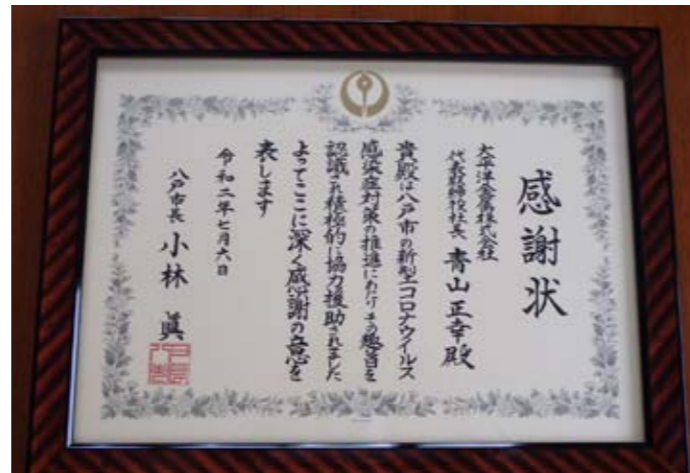 感謝状
太平洋金属株式会社
代表取締役社長 青山正幸殿
貴殿は八戸市の新型コロナウイルス
感染症対策の推進にあたりその趣旨を
認識され積極的に協力援助されました
よってここに深く感謝の意を
表します
令和二年七月六日
八戸市長 小林 眞